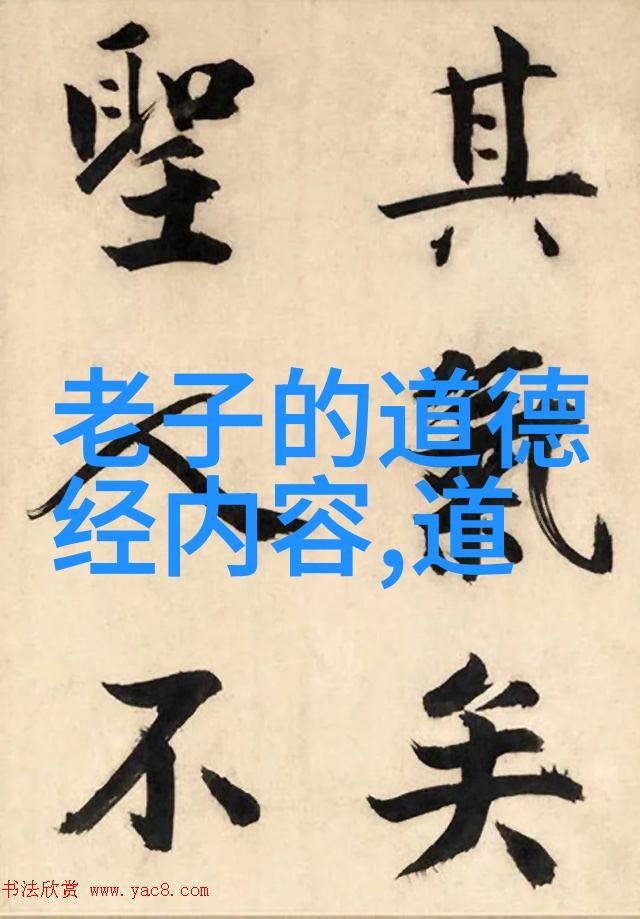 其 矣
聖人不
老子的道德
经内容,道
书法欣赏 www.yac8.com